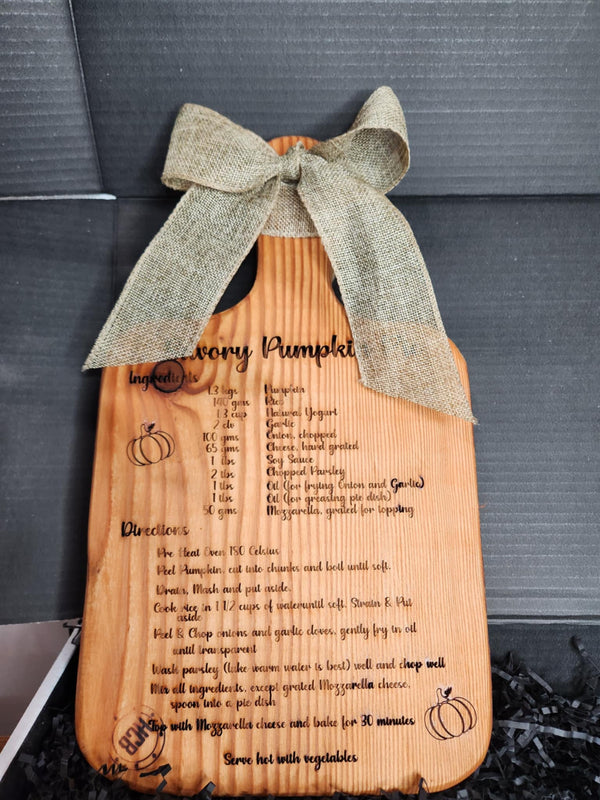 avory Pumpki
Ingredients
1.3 kgs Pumpkin
140 gms Rice
1.3 cup Natural Yogurt
2 clv Garlic
100 gms Onion, chopped
65 gms Cheese, hard grated
1 tbs Soy Sauce
2 tbs Chopped Parsley
1 tbs Oil (for frying Onion and Garlic)
1 tbs Oil (for greasing pie dish)
50 gms Mozzarella, grated for topping
Directions
Pre Heat Oven 180 Celsius
Peel Pumpkin, cut into chunks and boil until soft.
Drain, Mash and put aside.
Cook rice in 1 1/2 cups of wateruntil soft. Strain & Put
aside
Peel & Chop onions and garlic cloves, gently fry in oil
until transparent
Wash parsley (luke warm water is best) well and chop well
Mix all ingredients, except grated Mozzarella cheese,
spoon into a pie dish
Top with Mozzarella cheese and bake for 30 minutes
Serve hot with vegetables
HCB